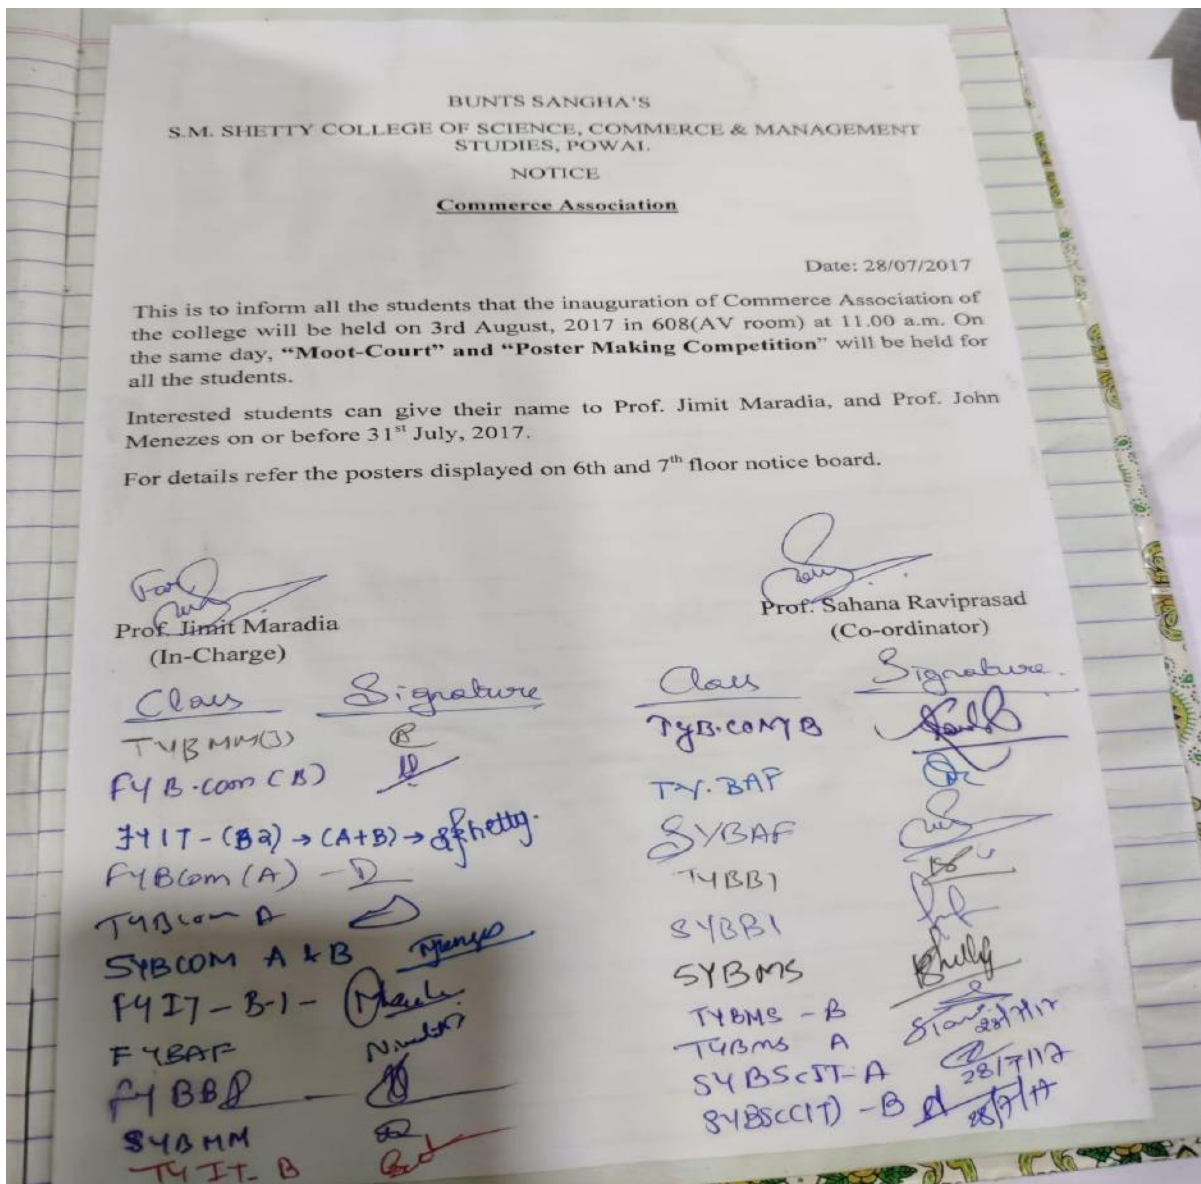 BUNTS SANGHA'S
S.M. SHETTY COLLEGE OF SCIENCE, COMMERCE & MANAGEMENT
STUDIES, POWAI.
NOTICE
Commerce Association
Date: 28/07/2017
This is to inform all the students that the inauguration of Commerce Association of
the college will be held on 3rd August, 2017 in 608(AV room) at 11.00 a.m. On
the same day, “Moot-Court” and “Poster Making Competition” will be held for
all the students.
Interested students can give their name to Prof. Jimit Maradia, and Prof. John
Menezes on or before 31st July, 2017.
For details refer the posters displayed on 6th and 7th floor notice board.
For
Prof. Jimit Maradia
(In-Charge)
Prof. Sahana Raviprasad
(Co-ordinator)
Class Signature
TYBMM(J)
FYB.com (B)
FYIT-(B2) → (A+B) → Shetty.
FYBCom (A) -
TYBcom A
SYBCOM A & B
FYIT-B-1-
FYBAF
FYBBI
SYBMM
TYIT-B
Class Signature.
TYB.COM B
TY.BAF
SYBAF
TYBBI
SYBBI
SYBMS Shetty
TYBMS - B
TYBMS A 28/7/17
SYBScIT-A 28/7/17
SYBSC(IT) - B 28/7/17